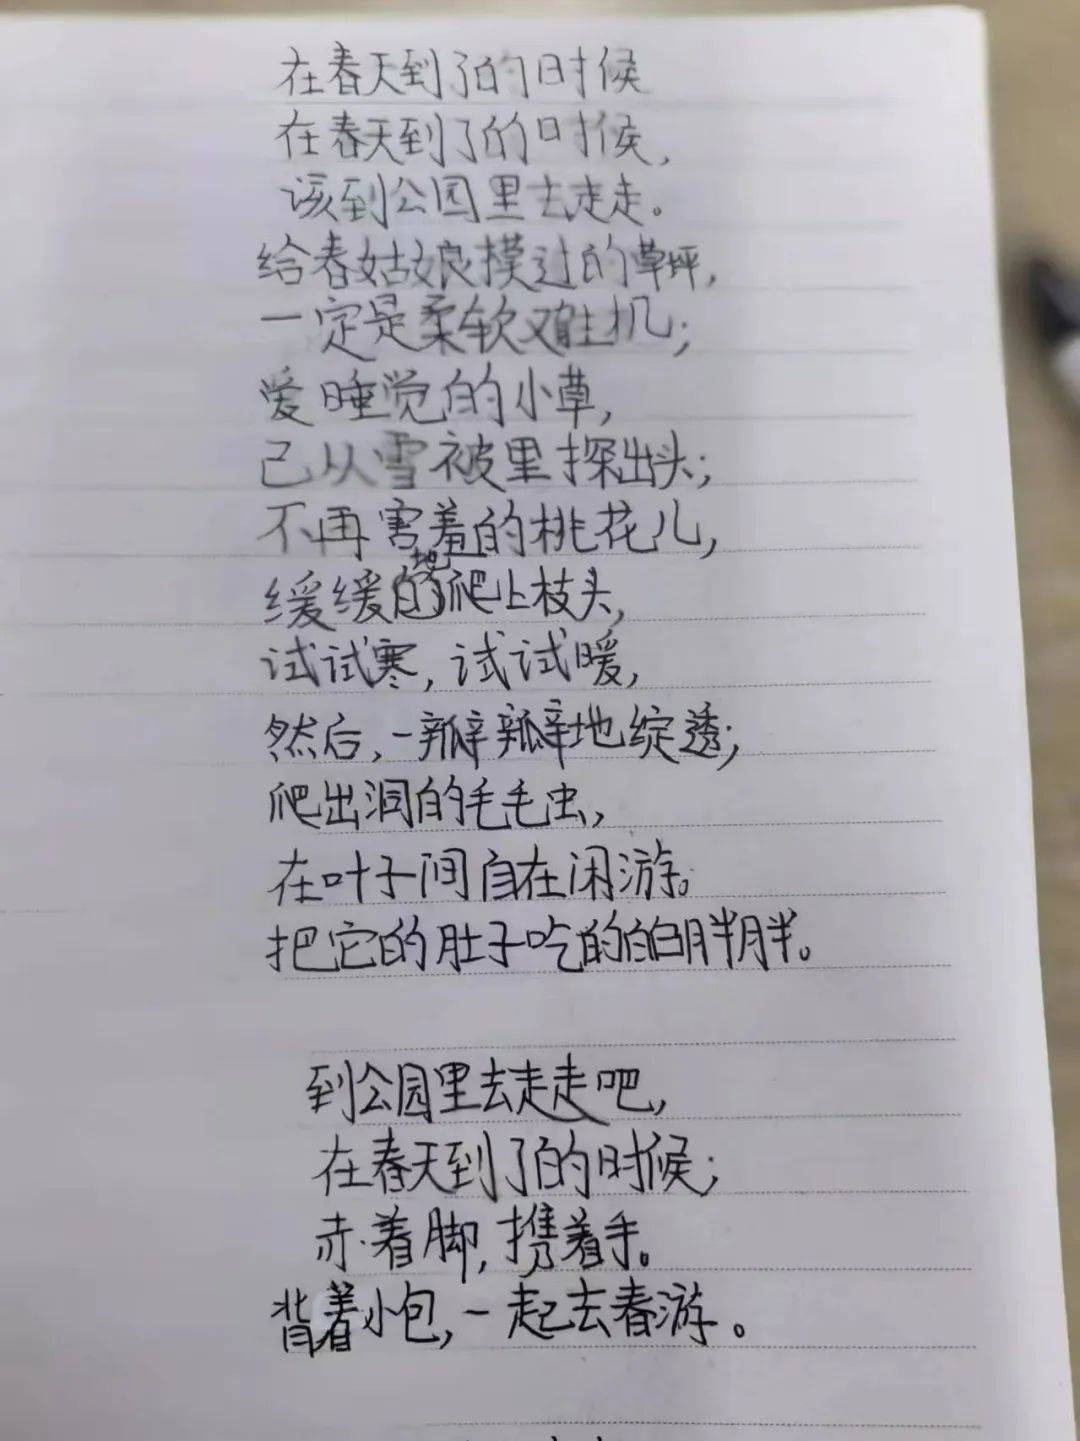 在春天到了的时候
在春天到了的时候,
该到公园里去走走。
给春姑娘摸过的草坪,
一定是柔软又难生机;
爱睡觉的小草,
已从雪被里探出头;
不再害羞的桃花儿,
缓缓地爬上枝头,
试试寒,试试暖,
然后,一瓣瓣地绽透;
爬出洞的毛毛虫,
在叶子间自在闲游。
把它的肚子吃的白白胖胖。
到公园里去走走吧,
在春天到了的时候;
赤着脚,携着手。
背着小包,一起去春游。